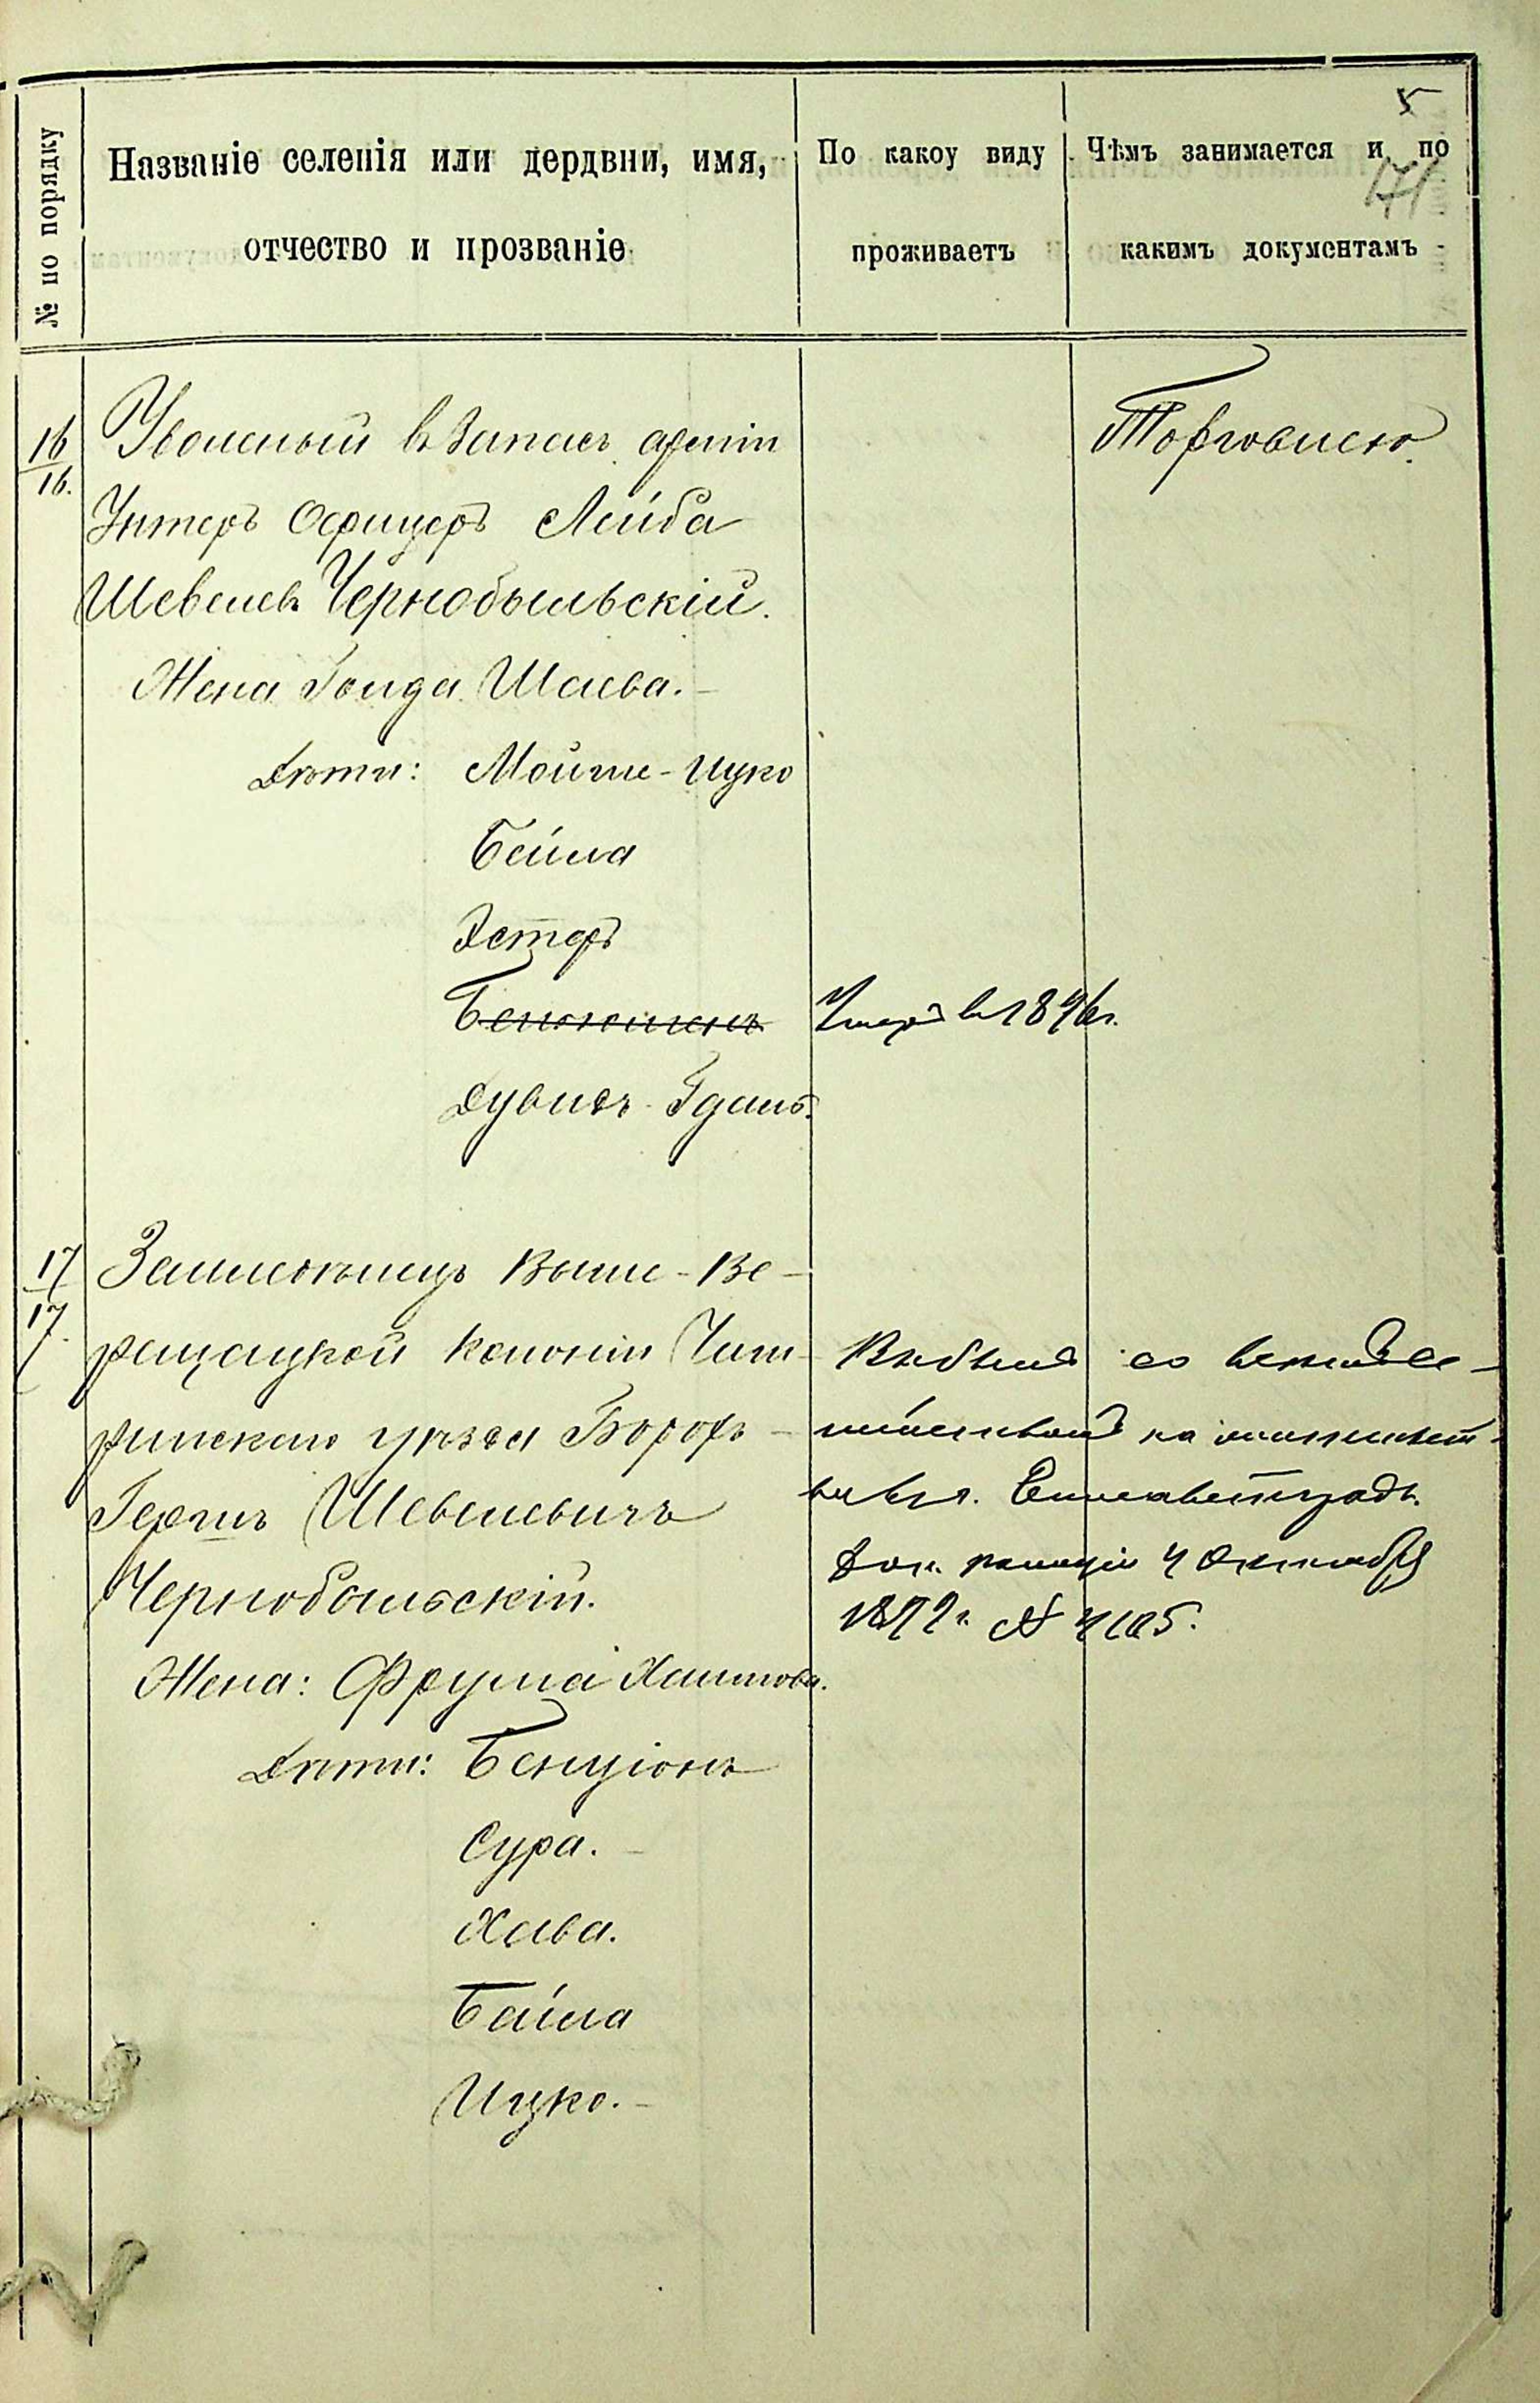 5
171
№ по порядку
Названіе селенія или дердвни, имя,
отчество и прозваніе
По какоу виду
проживаетъ
Чѣмъ занимается и по
какимъ документамъ
16
16.
Уволеный въ Запасъ арміи
Торговлею.
Унтеръ Офицеръ Лейба
Шевелев Чернобыльскій.
Жена Голда Шаева.
Дѣти: Мойше-Ицко
Бейла
Эстеръ
Бенюминъ Умеръ в 1896 г.
Дувидъ-Гдаль.
17
17.
Землевлѣдѣлецъ Выше-Ве-
рещацкой колоніи Чиги-
ринскаго уѣзда Борохъ-
Гершъ Шевелевичъ
Чернобыльскій.
Жена: Фрума Хаимова.
Дѣти: Бенціонъ
Сура.
Хава.
Бейла
Ицко.
Выбылъ со всѣмъ се-
мѣйствомъ на жительст-
во в г. Елисаветградъ.
полиціи 4 Октября
189 г. №